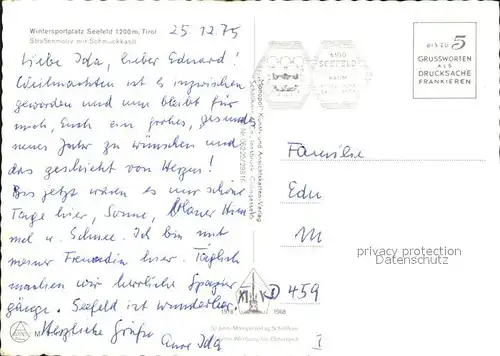 Wintersportplatz Seefeld 1200 m, Tirol
Straßenmotiv mit Schmuckkastl
25.12.75
Liebe Ida, lieber Eduard!
Weihnachten ist es inzwischen
geworden und nun bleibt für
mich, Euch ein frohes, gesundes
neues Jahr zu wünschen und
das geschieht von Herzen!
Bis jetzt waren es nur schöne
Tage hier, Sonne, blauer Him
mel u. Schnee. Ich bin mit
meiner Freundin hier. Täglich
machen wir herrliche Spazier
gänge. Seefeld ist wunderbar.
Herzliche Grüße
Eure Ida
6100
SEEFELD
BIS ZU 5
GRUSSWORTEN
ALS
DRUCKSACHE
FRANKIEREN
Familie
Edu
M
D 459
I
privacy protection
Datenschutz
1918
1968